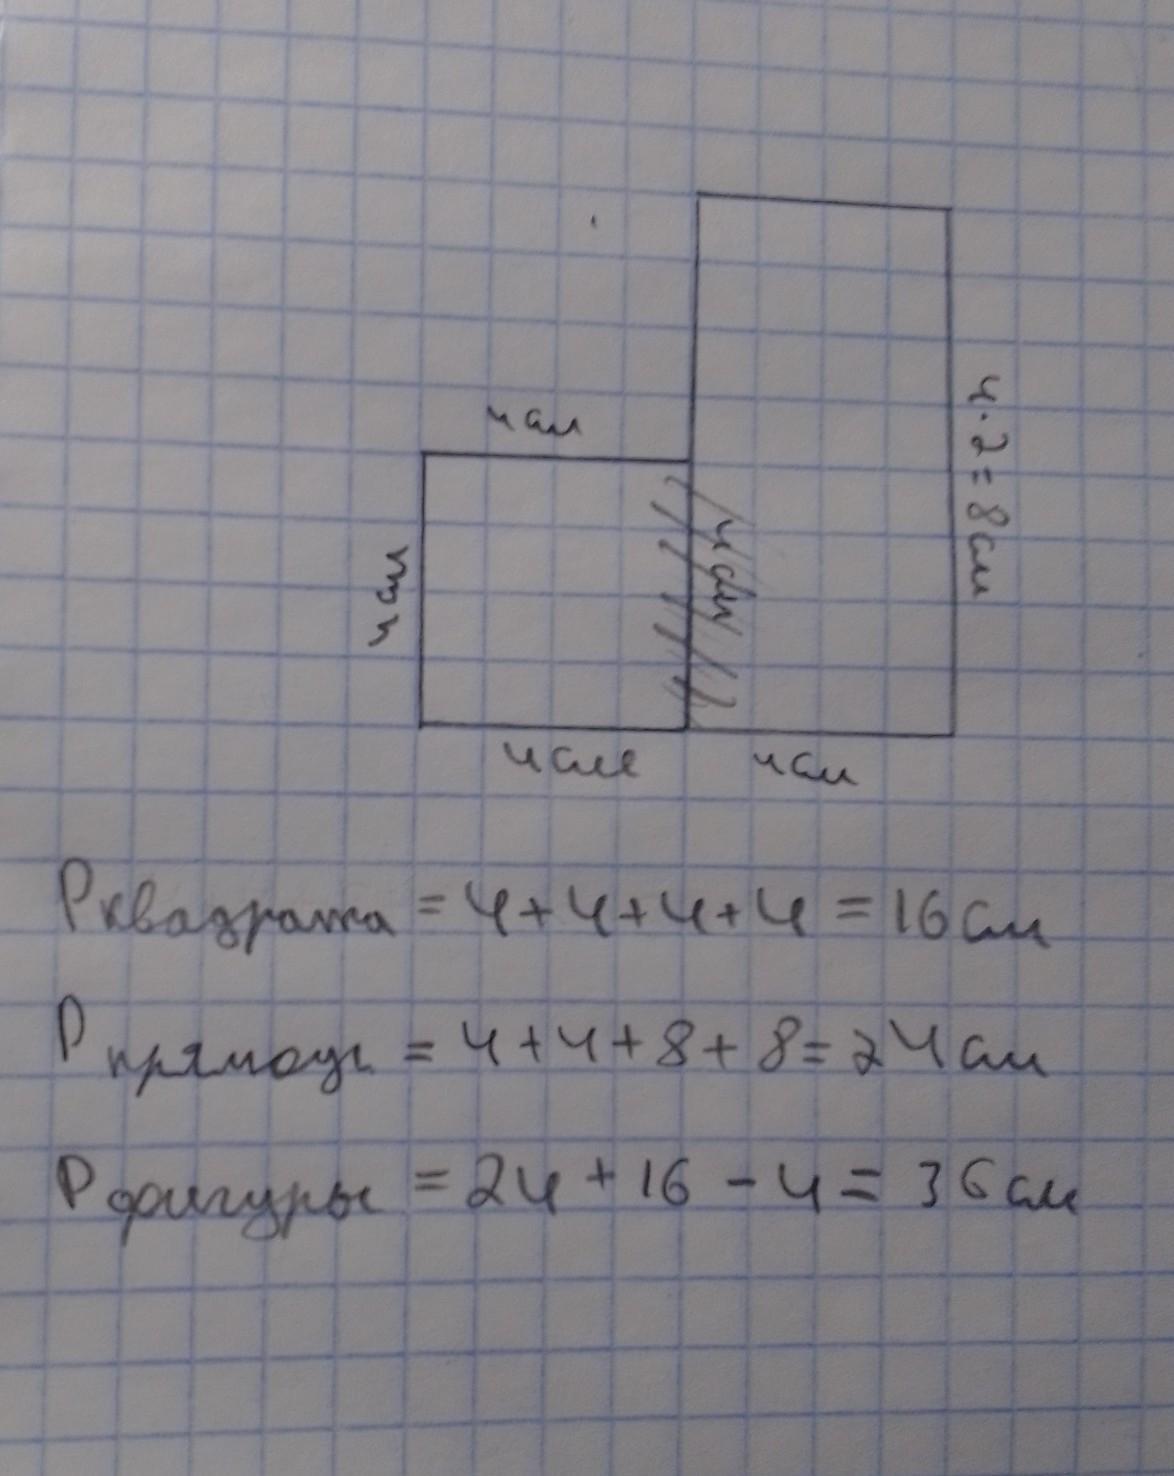 4 см
4·2=8см
4 см
4см
4см
4см
Pквадрата = 4+4+4+4 = 16см
Pпрямоуг = 4+4+8+8=24см
Pфигуры = 24+16-4= 36см